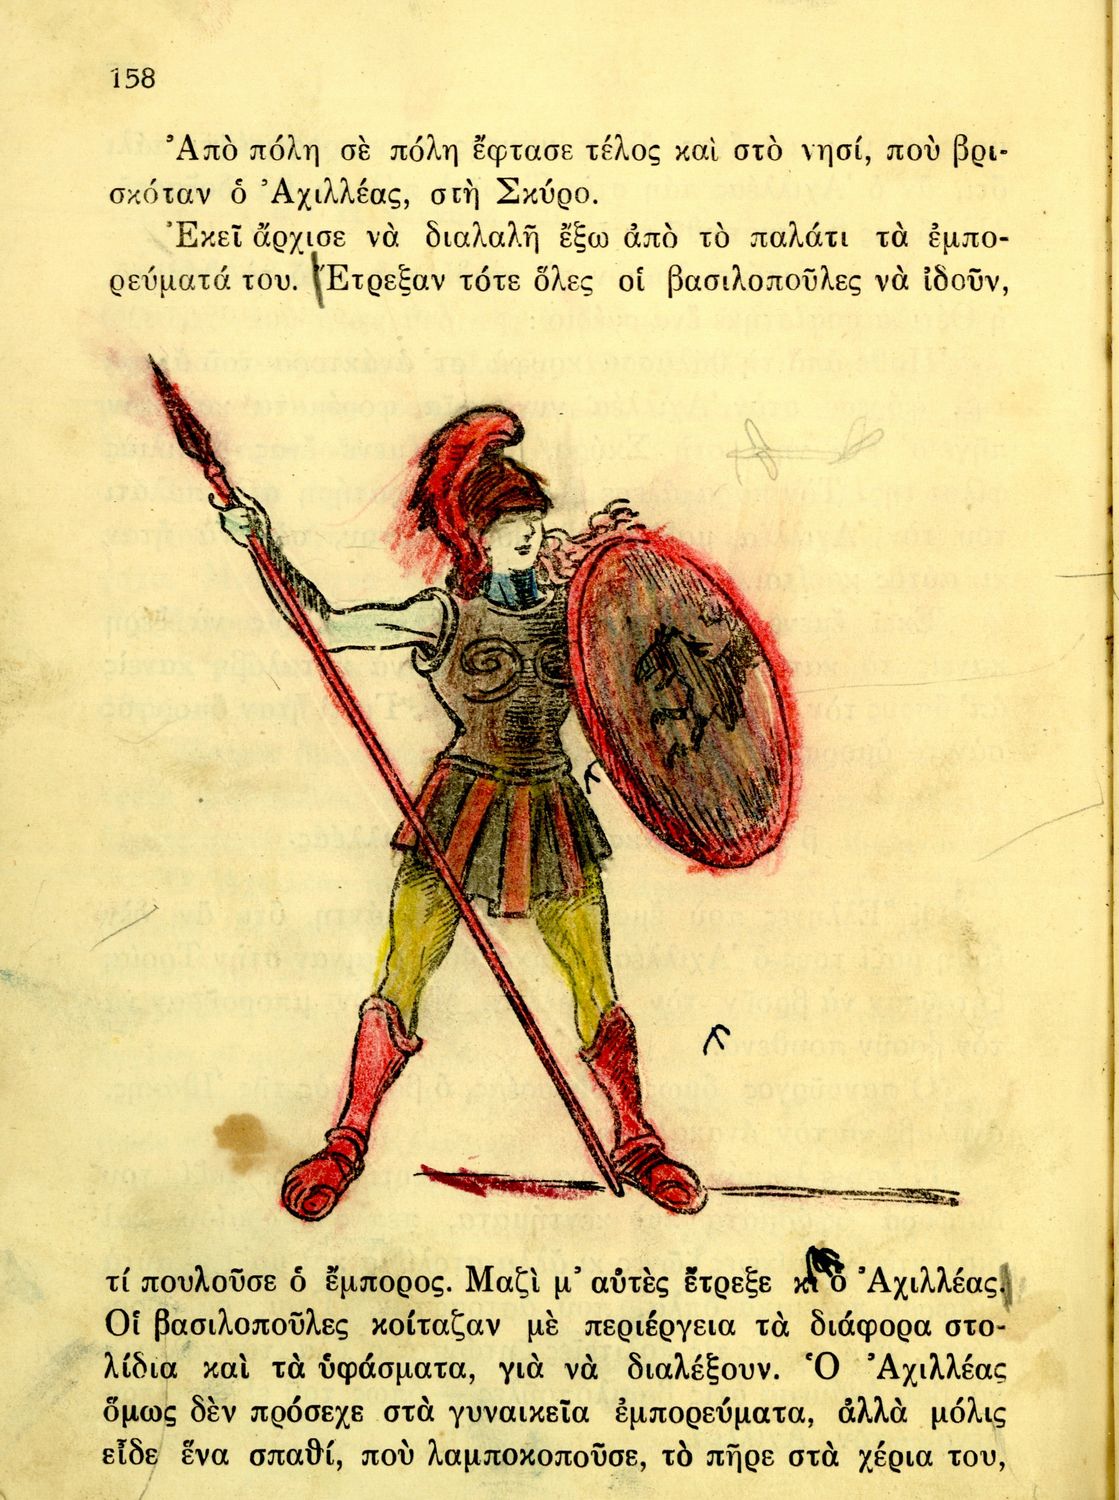 158
Ἀπὸ πόλη σὲ πόλη ἔφτασε τέλος καὶ στὸ νησί, ποὺ βρι-
σκόταν ὁ Ἀχιλλέας, στὴ Σκύρο.
Ἐκεῖ ἄρχισε νὰ διαλαλῆ ἔξω ἀπὸ τὸ παλάτι τὰ ἐμπο-
ρεύματά του. Ἔτρεξαν τότε ὅλες οἱ βασιλοποῦλες νὰ ἰδοῦν,
τί πουλοῦσε ὁ ἔμπορος. Μαζὶ μ' αὐτὲς ἔτρεξε κι ὁ Ἀχιλλέας.
Οἱ βασιλοποῦλες κοίταζαν μὲ περιέργεια τὰ διάφορα στο-
λίδια καὶ τὰ ὑφάσματα, γιὰ νὰ διαλέξουν. Ὁ Ἀχιλλέας
ὅμως δὲν πρόσεχε στὰ γυναικεῖα ἐμπορεύματα, ἀλλὰ μόλις
εἶδε ἕνα σπαθί, ποὺ λαμποκοποῦσε, τὸ πῆρε στὰ χέρια του,